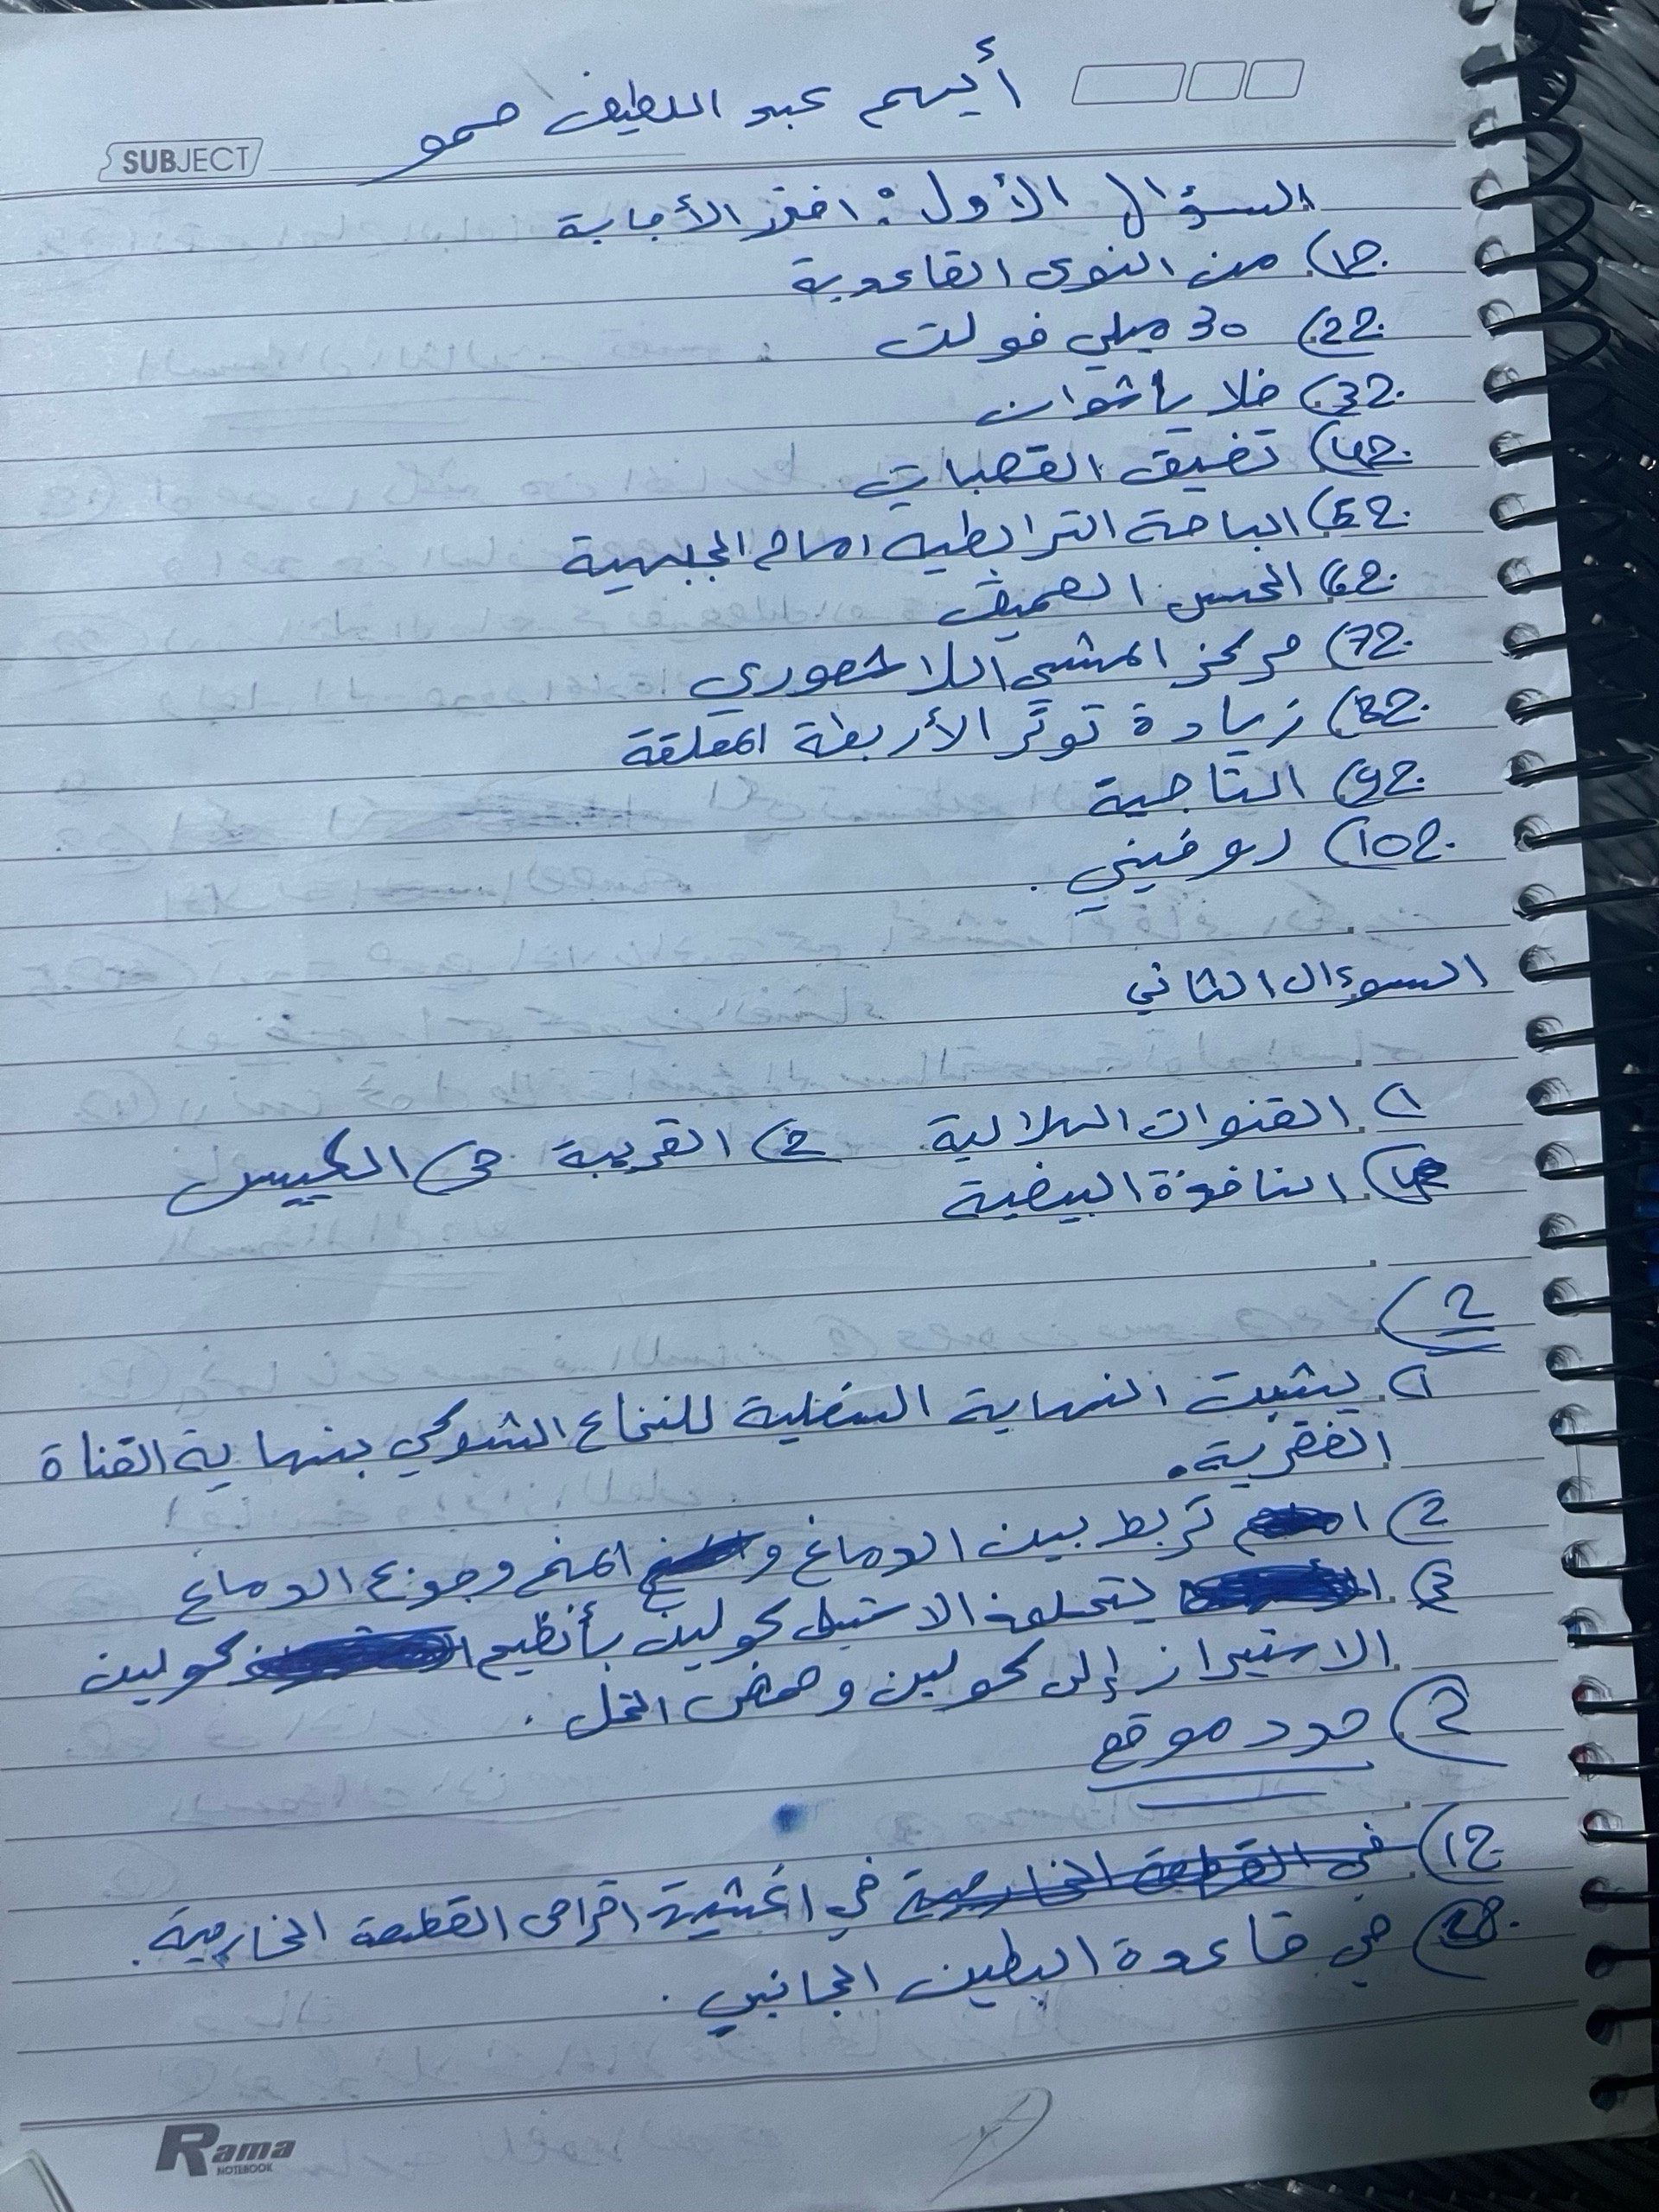 أيهم عبد اللطيف حمو
SUBJECT
السؤال الأول: اختر الأجابة
1) من النوى القاعدية
2) 30 ميلي فولت
3) خلايا شوان
4) تضيق القصبات
5) الباحة الترابطية امام الجبهية
6) الحس العميق
7) مركز المشي اللاشعوري
8) زيادة توتر الأربطة المعلقة
9) التاجية
10) روفيني.
السوءال الثاني
1) القنوات الهلالية 2) القريبة 3) الكييس
4) النافذة البيضية
2)
1) يثبت النهاية السفلية للنخاع الشوكي بنهاية القناة
الفقرية.
2) تربط بين الدماغ و المخ وجذع الدماغ
3) يتحلمه الاستيل كولين بأنظيم كولين
الاستيراز إلى كولين وحمض الخل.
2) حدد موقع
1) في القطعة الخارجية في اغشية اقراص القطعة الخارجية.
2) في قاعدة البطين الجانبي.
Rama
NOTEBOOK